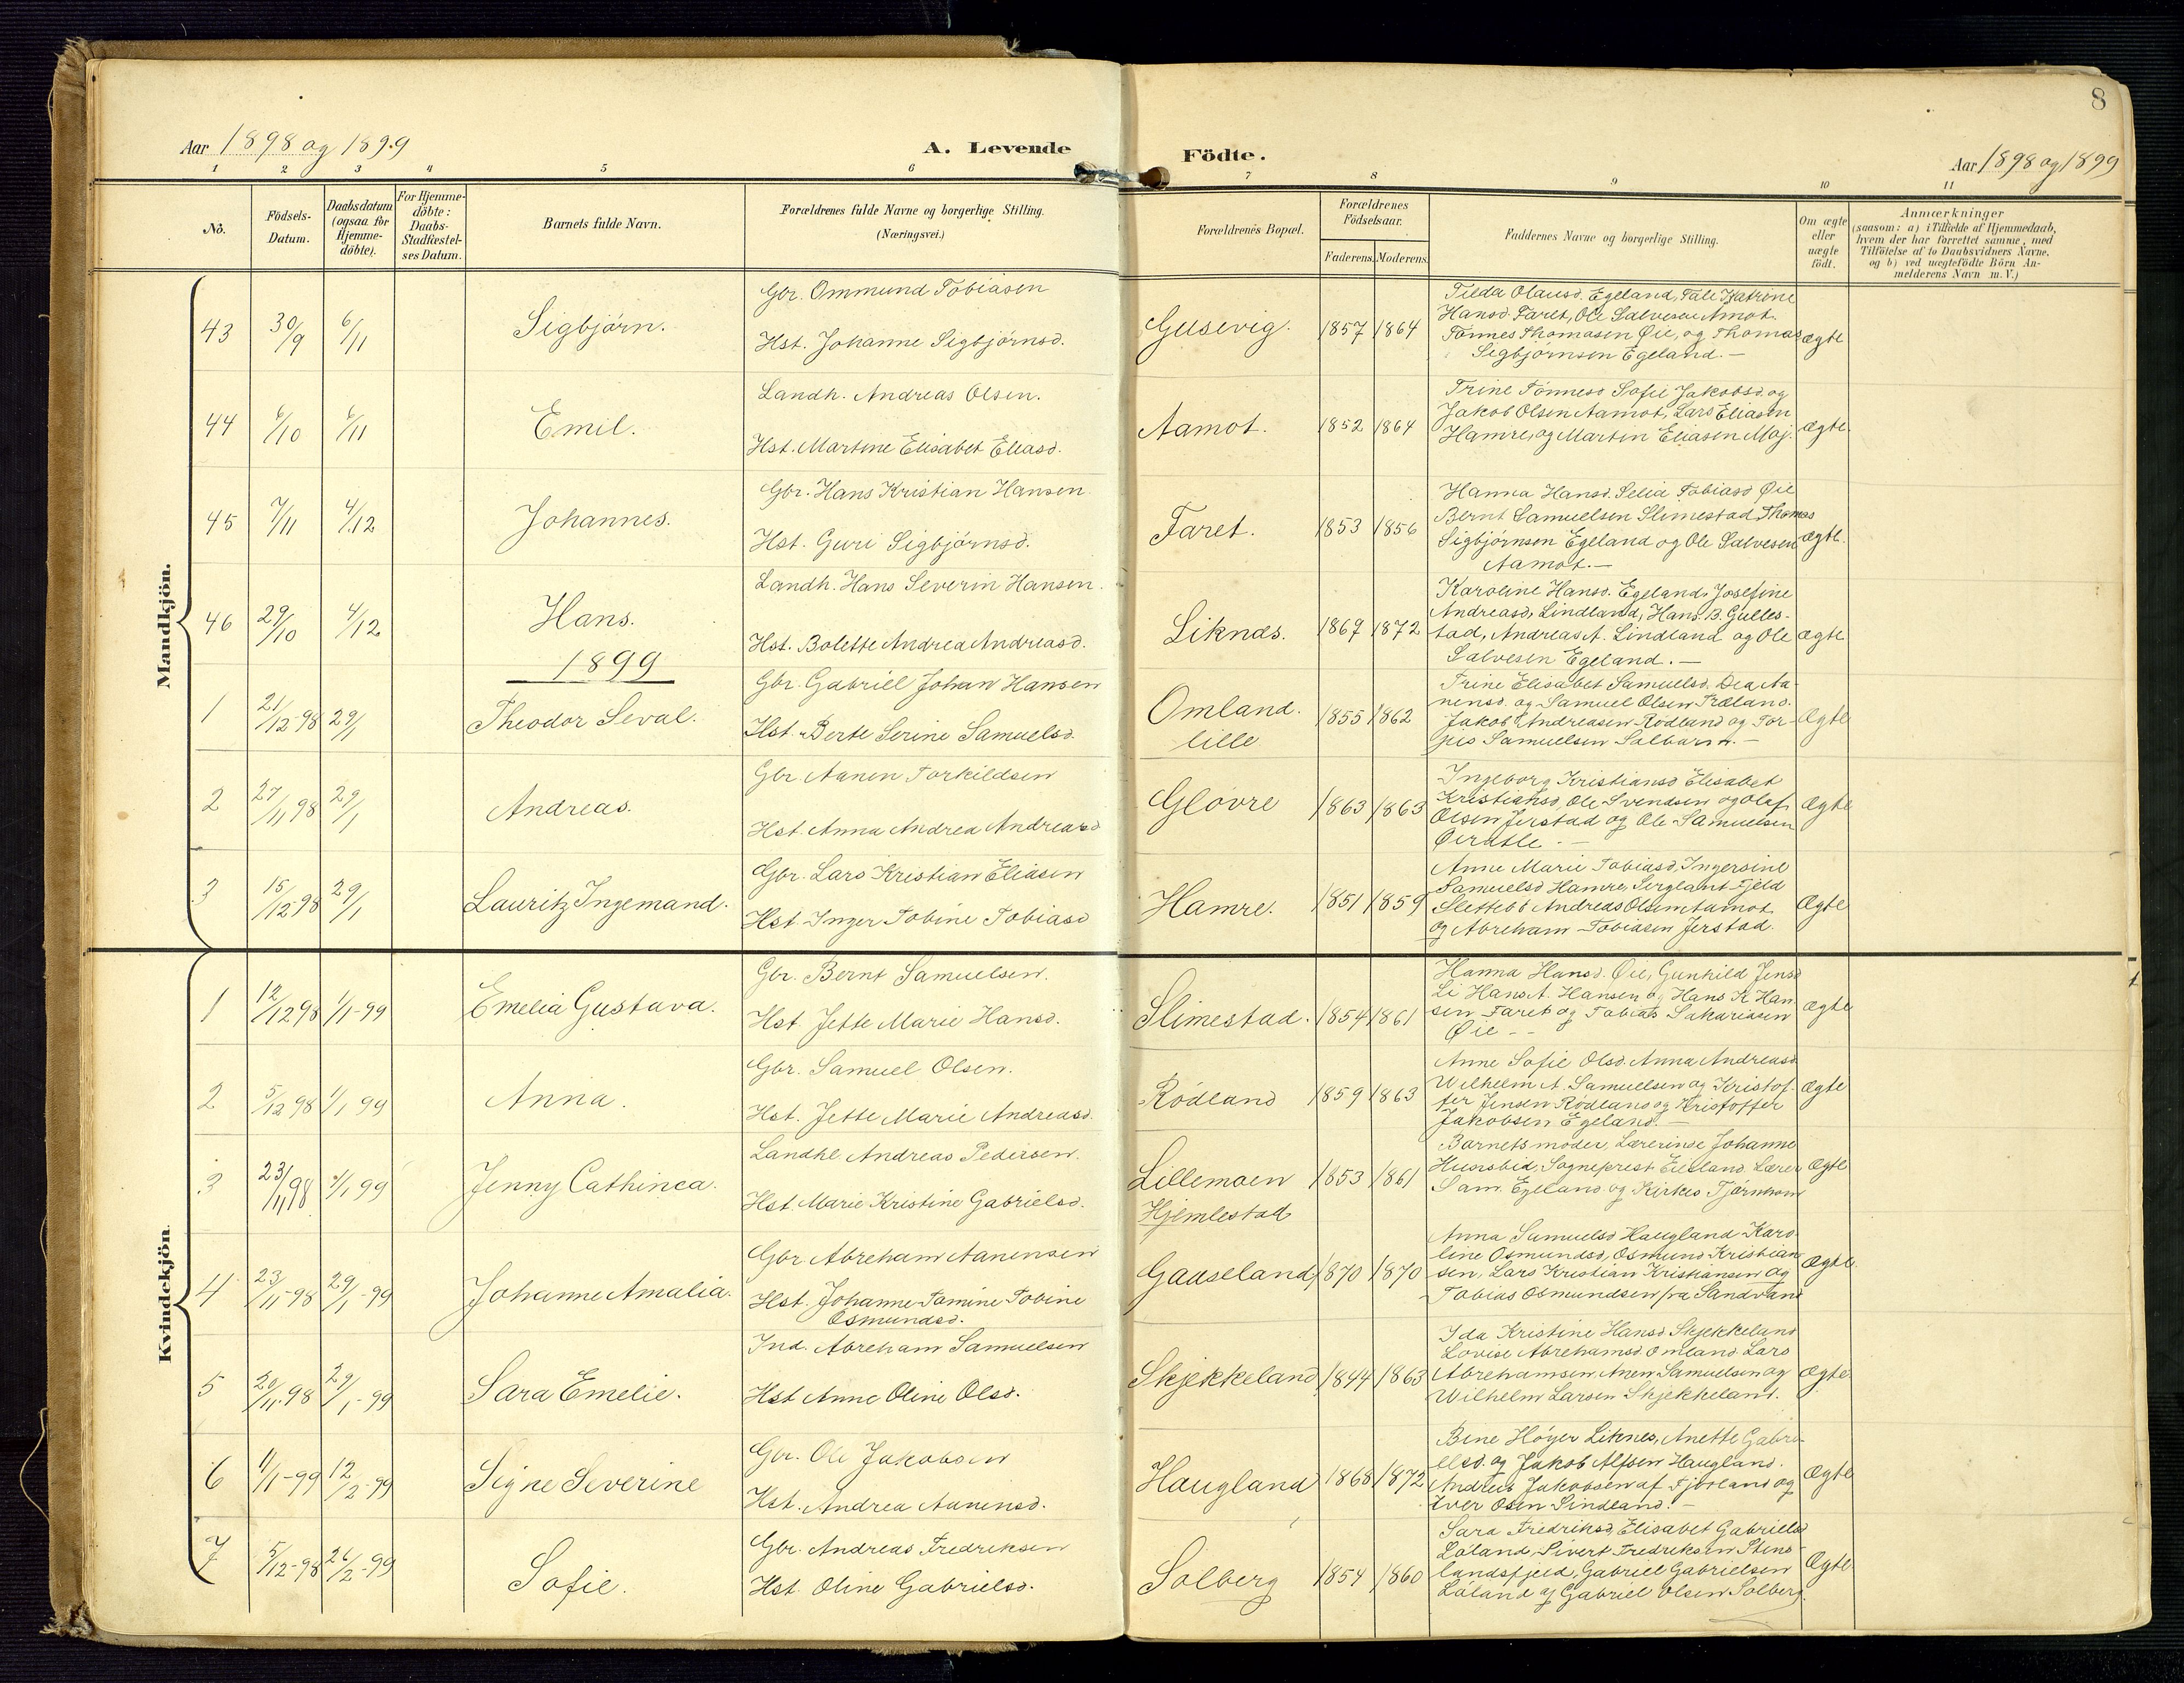 8
Aar 1898 og 1899
A. Levende
Födte.
Aar 1898 og 1899
1 2 3 4 5 6 7 8 9 10 11
No.
Födsels-Datum.
Daabsdatum (ogsaa for Hjemme-döbte).
For Hjemme-döbte: Daabs-Stadfæstel-ses Datum.
Barnets fulde Navn.
Forældrenes fulde Navne og borgerlige Stilling.
(Næringsvei.)
Forældrenes Bopæl.
Forældrenes Födselsaar.
Faderens.
Moderens.
Faddernes Navne og borgerlige Stilling.
Om ægte eller uægte født.
Anmærkninger
(saasom: a) i Tilfælde af Hjemmedaab,
hvem der har forrettet samme, med
Tilföielse af to Daabsvidners Navne,
og b) ved uægtefödte Börn An-
melderens Navn m. V.)
Mandkjön.
43 30/9 6/11 Sigbjörn.
Gbr. Ommund Tobiasen
Hst. Johanne Sigbjörnsd.
Gusevig. 1857 1864
Tilda Olausd. Egeland, Tale Katrine
Hansd. Faret, Ole Salvesen Amot.
Tönnes Thomasen Øie, og Thomas
Sigbjörnsen Egeland. —
ægte
44 6/10 6/11 Emil.
Landh. Andreas Olsen.
Hst. Martine Elisabet Eliasd.
Aamot. 1852 1864
Trine Tönnesd Sofie Jakobsd. og
Jakob Olsen Aamot, Lars Eliasen
Hamre, og Martin Eliasen Moj.
ægte.
45 7/11 4/12 Johannes.
Gbr. Hans Kristian Hansen
Hst. Guri Sigbjörnsd.
Faret. 1853 1856
Hanna Hansd. Selia Tobiasd Øie
Bernt Samuelsen Slimestad, Thomas
Sigbjörnsen Egeland og Ole Salvesen
Aamot. —
ægte.
46 29/10 4/12 Hans.
Landh. Hans Severin Hansen.
Hst. Bolette Andrea Andreasd.
Liknes. 1869 1872
Karoline Hansd. Egeland, Josefine
Andreasd, Lindland, Hans. B. Gulles-
tad, Andreas A. Lindland og Ole
Salvesen Egeland. —
ægte
1899
1 21/12-98 29/1 Theodor Seval.
Gbr. Gabriel Johan Hansen
Hst. Berte Serine Samuelsd.
Omland.
lille
1855 1862
Trine Elisabet Samuelsd. Dea Aa-
nensd. og Samuel Olsen Træland.
Jakob Andreasen Rödland og Tor-
jus Samuelsen
Ægte
2 27/11 98 29/1 Andreas.
Gbr Aanen Torkildsen
Hst. Anna Andrea Andreasd
Glövre 1863 1863
Ingeborg Kristiansd Elisabet
Kristiansd, Ole Svendsen og Olaf
Olsen Jerstad og Ole Samuelsen
Ægte
3 15/12-98 29/1 Lauritz Ingemand.
Gbr. Lars Kristian Eliasen
Hst Inger Tobine Tobiasd
Hamre. 1851 1859
Anne Marie Tobiasd, Ingersine
Samuelsd Hamre, Fjeld
Andreas Olsen Aamot
og Abreham Tobiasen Jerstad.
Ægte
Kvindekjön
1 12/12 98 1/1-99 Emelia Gustava.
Gbr. Bernt Samuelsen.
Hst. Jette Marie Hansd.
Slimestad. 1854 1861
Hanna Hansd. Øie, Gunhild Jensd
Li Hans A. Hansen og Hans K Han-
sen Faret og Tobias Sakariasen
Øie - -
Ægte
2 5/12 98 1/1 99 Anna.
Gbr. Samuel Olsen.
Hst. Jette Marie Andreasd.
Rödland 1859 1863
Anne Sofie Olsd. Anna Andreasd
Wilhelm A. Samuelsen og Kristof-
fer Jensen Rödland og Kristoffer
Jakobsen Egeland. —
Ægte
3 23/11 98 1/1 99 Jenny Cathinca.
Landhl Andreas Pedersen.
Hst. Marie Kristine Gabrielsd.
Lillemoen
Hjemlestad
1853 1861
Barnets moder, Lærerinde Johanne
Hunsbid, Sogneprest Lærer
Sam. Egeland og Kirkes
Ægte
4 23/11-98 29/1-99 Johanne Amalia.
Gbr Abreham Aanensen
Hst. Johanne Tomine Tobine
Osmundsd.
Gauseland 1870 1870
Anna Samuelsd Haugland Karo-
line Osmundsd, Osmund Kristian
sen, Lars Kristian Kristiansen og
Tobias Osmundsen fra Sandvand
Ægte
5 20/11-98 29/1-99 Sara Emelie.
Ind. Abreham Samuelsen
Hst Anne Oline Olsd.
Skjekkeland 1844 1863
Ida Kristine Hansd Skjekkeland
Lovise Abrehamsd. Omland. Lars
Abrehamsen, Anen Samuelsen og
Wilhelm Larsen Skjekkeland.
Ægte
6 11/1-99 12/2-99 Signe Severine
Gbr. Ole Jakobsen
Hst. Andrea Aanensd.
Haugland 1868 1872
Bine Höyer Liknes, Anette Gabri-
elsd. og Jakob Alfsen Haugland.
Andreas Jakobsen af Fjörland og
Iver Osen Sindland. —
Ægte
7 5/12-98 26/2-99 Sofie.
Gbr. Andreas Fredriksen
Hst. Oline Gabrielsd.
Solberg 1854 1860
Sara Fredriksd, Elisabet Gabrielsd
Löland, Sivert Fredriksen Stens-
landsfjeld, Gabriel Gabrielsen
Löland og Gabriel Olsen Solberg.
Ægte